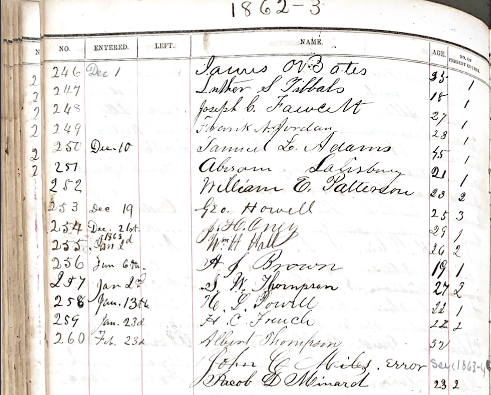 1862-3
NO. ENTERED. LEFT. NAME. AGE. NO. OF
246 Dec 1 James Bates 1
247 Luther S Tibbals 18 1
248 Joseph C. Fawcett 27 1
249 Frank A. Jordan 28 1
250 Dec. 10 Samuel L. Adams 45 1
251 Abiram Salisbury 21 1
252 William T. Patterson 23 2
253 Dec 19 Geo. Howell 25 3
254 Dec. 21st. 29 1
1863
255 Jan 2d Wm H Hall 26 2
256 Jan 6th A J Brown 19 1
257 Jan W. Thompson 27 2
258 Jan. 13th Powell 1
259 Jan. 23d A C French 22 2
260 Feb. 23d Albert Thompson
John C Miles. Error
Jacob D Minard 23 2